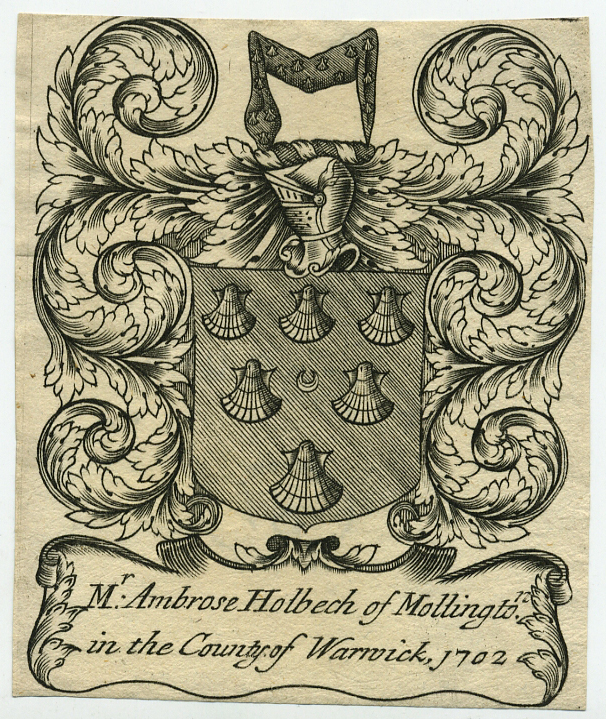 Mr. Ambrose Holbech of Mollingtōn.
in the County of Warwick, 1702